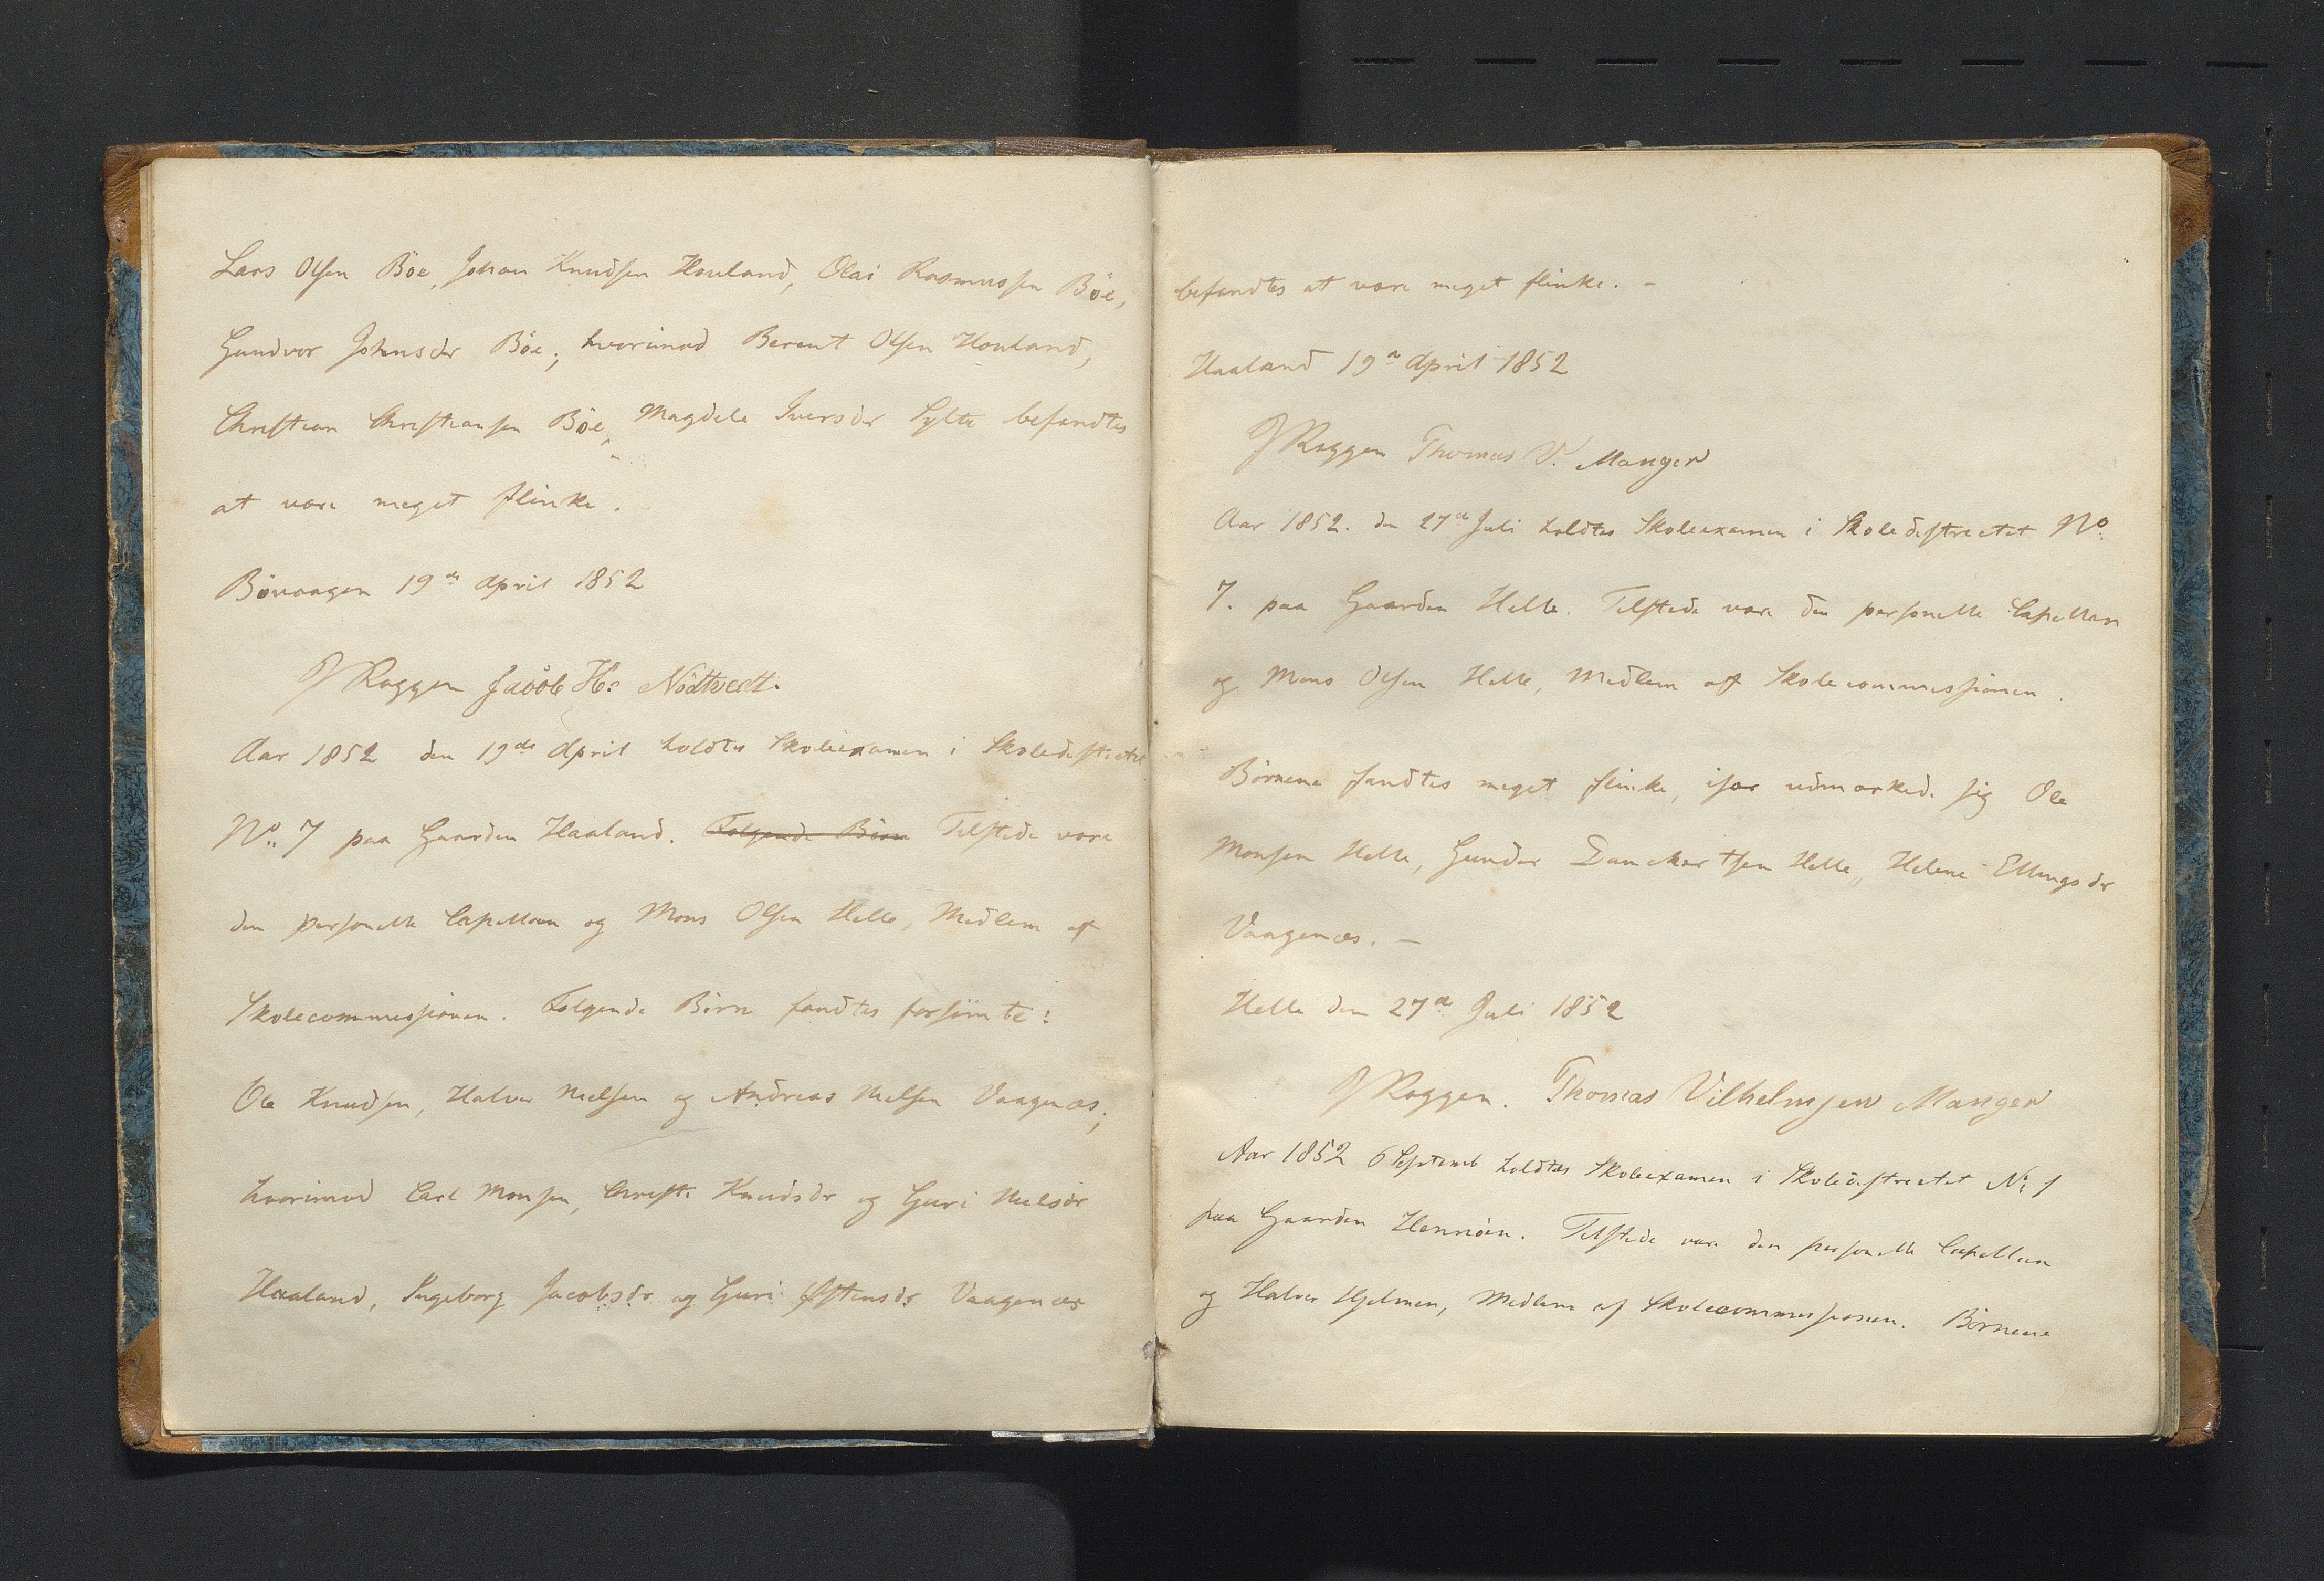 Lars Olsen Böe, Johan Knudsen Houland, Olai Rasmussen Böe,
Gundvor Johnsdr Böe; hvorimod Berent Olsen Houland,
Christian Christiansen Böe, Magdele Iversdr Sylte befandtes
at være meget flinke.
Bövaagen 19de April 1852
J Roggen Jacob H: Nödtvedt.
Aar 1852 den 19de April holdtes Skoleexamen i Skoledistrictet
No. 7 paa Gaarden Haaland. Følgende Børn Tilstede vare
den personelle Capellan og Mons Olsen Helle, Medlem af
Skolecommissionen. Følgende Börn fandtes forsömte:
Ole Knudsen, Halvor Nielsen og Andreas Nielsen Vaagenæs;
hvorimod Carl Monsen, Christi Knudsdr og Guri Nielsdr
Haaland, Ingeborg Jacobsdr og Guri Östensdr Vaagenæs
befandtes at være meget flinke. –
Haaland 19de April 1852
J Roggen Thomas V. Manger
Aar 1852. den 27de Juli holdtes Skoleexamen i Skoledistrictet No.
7. paa Gaarden Helle. Tilstede vare den personelle Capellan
og Mons Olsen Helle, Medlem aff Skolecommissionen.
Börnene fandtes meget flinke, især udmærkede sig Ole
Monsen Helle, Gunder Danckertsen Helle, Helene Ellingsdr
Vaagenæs. –
Helle den 27de Juli 1852
J Roggen. Thomas Vilhelmsen Manger
Aar 1852 6 Septemb holdtes Skoleexamen i Skoledistrictet No: 1
paa Gaarden Hennöen. Tilstede vare den personelle Capellan
og Halvor Hjelmen, Medlem af Skolecommissionen. Börnene